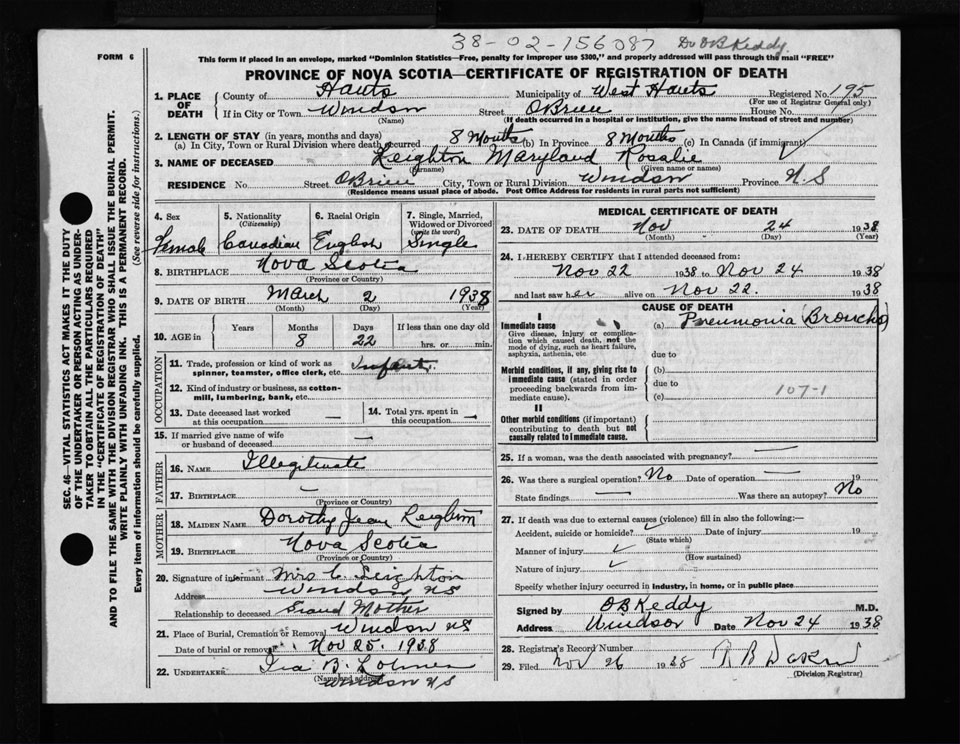 38-02-156087 Dr OB Keddy
FORM 6
This form if placed in an envelope, marked "Dominion Statistics—Free, penalty for improper use $300," and properly addressed will pass through the mail "FREE"
PROVINCE OF NOVA SCOTIA—CERTIFICATE OF REGISTRATION OF DEATH
1. PLACE OF DEATH
County of Hants Municipality of West Hants Registered No. 195
(For use of Registrar General only)
If in City or Town Windsor Street OBrien House No.
(Name) (If death occurred in a hospital or institution, give the name instead of street and number)
2. LENGTH OF STAY (in years, months and days)
(a) In City, Town or Rural Division where death occurred 8 Months (b) In Province 8 Months (c) In Canada (if immigrant)
3. NAME OF DECEASED Leighton Maryland Rosalie
(Surname) (Given name or names)
RESIDENCE No. Street OBrien City, Town or Rural Division Windsor Province N.S
(Residence means usual place of abode. Post Office Address for residents in rural parts not sufficient)
SEC. 46—VITAL STATISTICS ACT MAKES IT THE DUTY
OF THE UNDERTAKER OR PERSON ACTING AS UNDER-
TAKER TO OBTAIN ALL THE PARTICULARS REQUIRED
IN THE "CERTIFICATE OF REGISTRATION OF DEATH"
AND TO FILE THE SAME WITH THE DIVISION REGISTRAR WHO SHALL ISSUE THE BURIAL PERMIT.
WRITE PLAINLY WITH UNFADING INK. THIS IS A PERMANENT RECORD.
Every item of information should be carefully supplied. (See reverse side for instructions.)
4. Sex
Female
5. Nationality
(Citizenship)
Canadian
6. Racial Origin
English
7. Single, Married,
Widowed or Divorced
(write the word)
Single
8. BIRTHPLACE Nova Scotia
(Province or Country)
9. DATE OF BIRTH March 2 1938
(Month) (Day) (Year)
10. AGE in
Years Months Days If less than one day old
8 22 hrs. or min.
OCCUPATION
11. Trade, profession or kind of work as
spinner, teamster, office clerk, etc. Infant
12. Kind of industry or business, as cotton-
mill, lumbering, bank, etc.
13. Date deceased last worked
at this occupation —
14. Total yrs. spent in
this occupation —
15. If married give name of wife
or husband of deceased —
FATHER
16. NAME Illegitimate
17. BIRTHPLACE —
(Province or Country)
MOTHER
18. MAIDEN NAME Dorothy Jean Leighton
19. BIRTHPLACE Nova Scotia
(Province or Country)
20. Signature of informant Mrs C. Leighton
Address Windsor NS
Relationship to deceased Grand Mother
21. Place of Burial, Cremation or Removal Windsor NS
Date of burial or removal Nov 25. 1938
22. UNDERTAKER Ira B.
(Name and address)
Windsor NS
MEDICAL CERTIFICATE OF DEATH
23. DATE OF DEATH Nov 24 1938
(Month) (Day) (Year)
24. I HEREBY CERTIFY that I attended deceased from:
Nov 22 1938 to Nov 24 1938
and last saw her alive on Nov 22. 1938
CAUSE OF DEATH
I
Immediate cause (a) Pneumonia (Broncho)
Give disease, injury or complica-
tion which caused death, not the
mode of dying, such as heart failure,
asphyxia, asthenia, etc due to
Morbid conditions, if any, giving rise to
immediate cause (stated in order
proceeding backwards from im-
mediate cause). (b)
due to
(c) 107-1
II
Other morbid conditions (if important)
contributing to death but not
causally related to immediate cause.
25. If a woman, was the death associated with pregnancy? —
26. Was there a surgical operation? No Date of operation — 19
State findings — Was there an autopsy? No
27. If death was due to external causes (violence) fill in also the following:—
Accident, suicide or homicide? ✓ Date of injury 19
(State which)
Manner of injury ✓
(How sustained)
Nature of injury ✓
Specify whether injury occurred in industry, in home, or in public place
Signed by OB Keddy M.D.
Address Windsor Date Nov 24 1938
28. Registrar's Record Number
29. Filed Nov 26 1938
(Division Registrar)